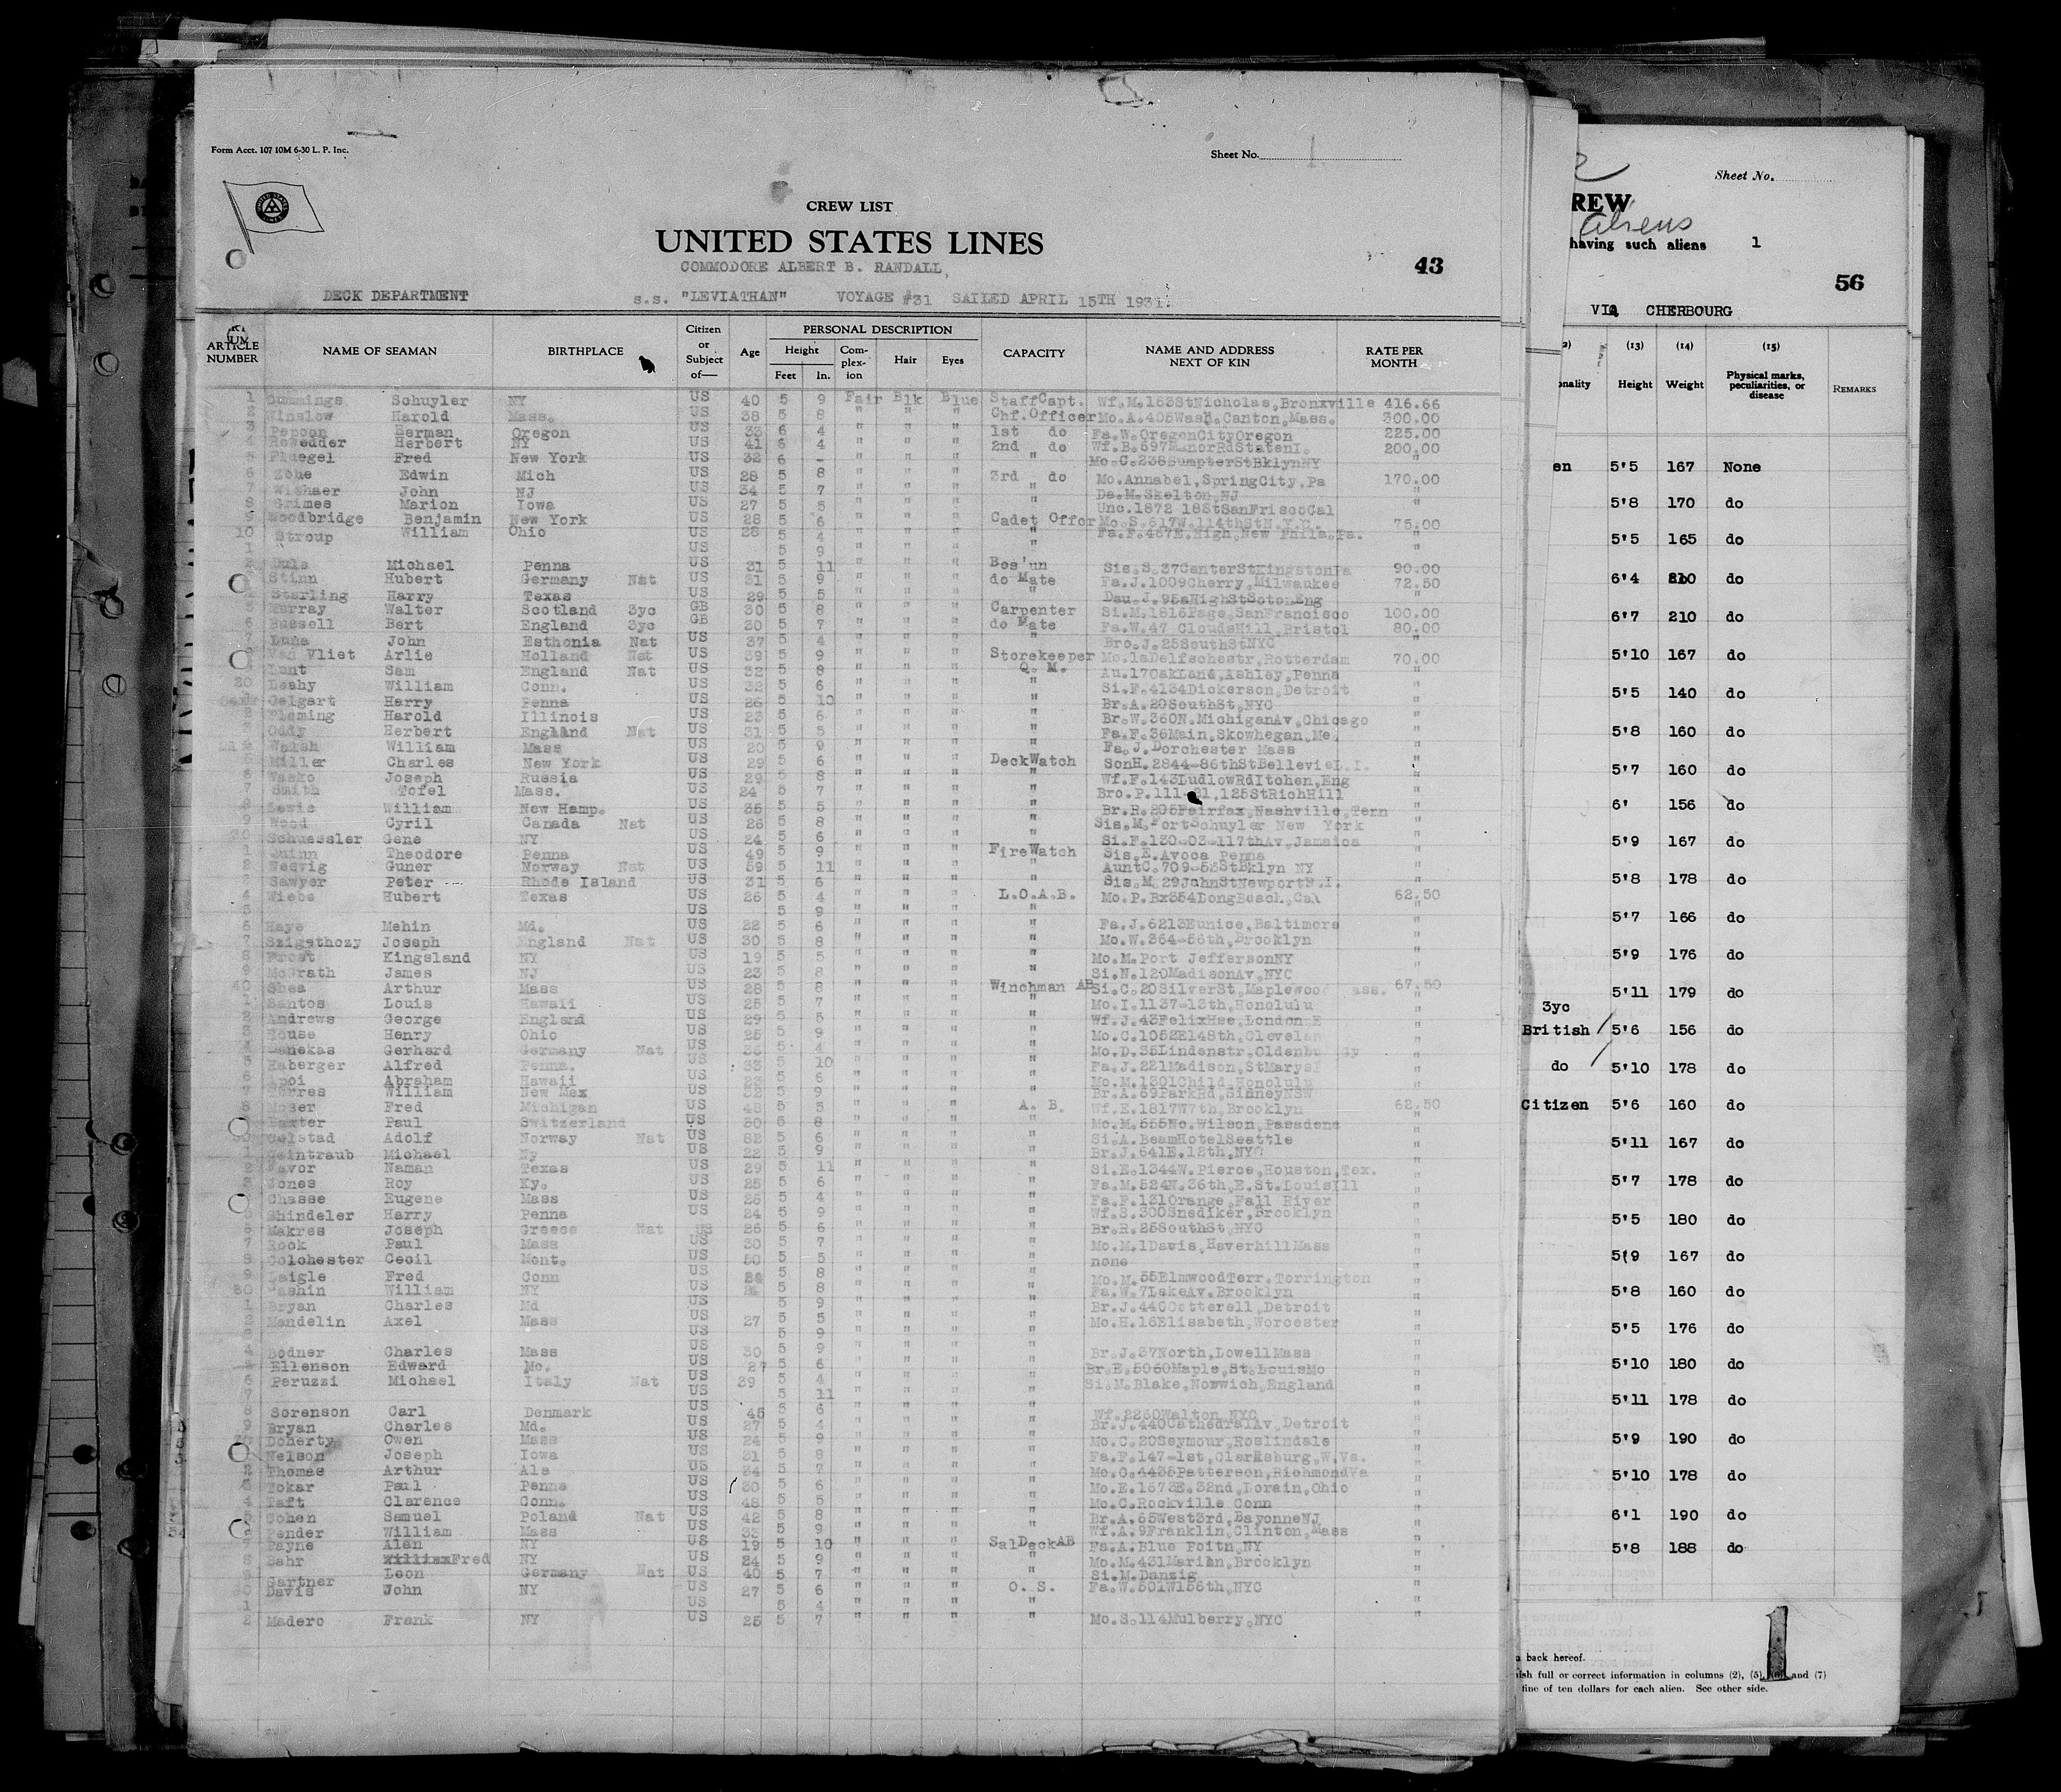 Form Acct. 107 10M 6-30 L. P. Inc.
Sheet No. 1
CREW LIST
UNITED STATES LINES
COMMODORE ALBERT B. RANDALL,
43
DECK DEPARTMENT s.s. "LEVIATHAN" VOYAGE #31 SAILED APRIL 15TH 1931.
ARTICLE NUMBER NAME OF SEAMAN BIRTHPLACE Citizen or Subject of— Age PERSONAL DESCRIPTION Height Feet In. Complexion Hair Eyes CAPACITY NAME AND ADDRESS NEXT OF KIN RATE PER MONTH
1 Cummings Schuyler NY US 40 5 9 Fair Blk Blue StaffCapt. Wf.M.163StNicholas,Bronxville 416.66
2 Winslow Harold Mass. US 38 5 8 " " " Chf.Officer Mo.A.405Wash.Canton,Mass. 300.00
3 Pepoon Herman Oregon US 33 6 4 " " " 1st do Fa.W.OregonCityOregon 225.00
4 Herbert NY US 41 6 4 " " " 2nd do Wf.B.697ManorRdStatenI. 200.00
5 Fluegel Fred New York US 32 6 - " " " " Mo.C.238SumpterStBklynNY "
6 Edwin Mich US 28 5 8 " " " 3rd do Mo.Annabel,SpringCity,Pa 170.00
7 John NJ US 34 5 7 " " " " Da.M.Skelton,NJ "
8 Grimes Marion Iowa US 27 5 5 " " " " Unc.1872 18StSanFriscoCal "
9 Woodbridge Benjamin New York US 28 5 6 " " " Cadet Offcr Mo.S.617W.114thStN.Y.C. 75.00
10 Stroup William Ohio US 26 5 4 " " " " Fa.F.467E.High,New Phila,Pa. "
1 US 5 9 " " "
Michael Penna US 31 5 11 " " " Bos'un Sis.S.37CanterStKingstonPa 90.00
Stinn Hubert Germany Nat US 31 5 9 " " " do Mate Fa.J.1009Cherry,Milwaukee 72.50
Starling Harry Texas US 29 5 5 " " " " Dau.J.95aHighStSotonEng "
5 Murray Walter Scotland 3yc GB 30 5 8 " " " Carpenter Si.M.1616Page,SanFrancisco 100.00
6 Bussell Bert England 3yc GB 30 5 7 " " " do Mate Fa.W.47 CloudsHill,Bristol 80.00
7 John Esthonia Nat US 37 5 4 " " " " Bro.J.25SouthStNYC "
Van Vliet Arlie Holland Nat US 39 5 9 " " " Storekeeper Mo.1aDelfschestr,Rotterdam 70.00
Lunt Sam England Nat US 32 5 8 " " " Q. M. Au.17OakLand,Ashley,Penna "
20 Leahy William Conn. US 32 5 6 " " " " Si.F.4134Dickerson,Detroit "
Gelgart Harry Penna US 26 5 10 " " " " Br.A.20SouthSt,NYC "
Fleming Harold Illinois US 23 5 6 " " " " Br.W.360N.MichiganAv,Chicago "
Oddy Herbert England Nat US 31 5 5 " " " " Fa.F.36Main,Skowhegan,Me. "
Walsh William Mass US 20 5 9 " " " " Fa.J.Dorchester Mass "
Miller Charles New York US 29 5 6 " " " DeckWatch SonH.2844-86thStBellevieL.I. "
6 Wasko Joseph Russia US 29 5 8 " " " " Wf.F.143LudlowRdItchen,Eng "
7 Smith Tofel Mass. US 24 5 7 " " " " Bro.P.111-21,125StRichHill "
8 Lewis William New Hamp. US 35 5 5 " " " " Br.R.205Fairfax,Nashville,Tern "
9 Wood Cyril Canada Nat US 26 5 8 " " " " Sis.M.FortSchuyler New York "
30 Schuessler Gene NY US 24 5 6 " " " " Si.F.130-03-117thAv,Jamaica "
1 Quinn Theodore Penna US 49 5 9 " " " FireWatch Sis.E.Avoca Penna "
2 Wesvig Guner Norway Nat US 59 5 11 " " " " AuntC.709-53StBklyn NY "
3 Sawyer Peter Rhode Island US 31 5 6 " " " " Sis.M.29JohnStNewportR.I. "
4 Wiebe Hubert Texas US 26 5 4 " " " L.O.A.B. Mo.P.Bx354DongBeach,Cal 62.50
5 US 5 9 " " " "
6 Haye Mehin Md. US 22 5 6 " " " " Fa.J.6213Eunice,Baltimore "
7 Szigethozy Joseph England Nat US 30 5 8 " " " " Mo.W.364-56th,Brooklyn "
8 Frost Kingsland NY US 19 5 5 " " " " Mo.M.Port JeffersonNY "
9 McGrath James NJ US 23 5 8 " " " " Si.N.120MadisonAv,NYC "
40 Shea Arthur Mass US 28 5 8 " " " Winchman AB Si.C.20SilverSt,Maplewood ass. 67.50
1 Santos Louis Hawaii US 25 5 7 " " " " Mo.I.1137-13th,Honolulu "
2 Andrews George England US 29 5 5 " " " " Wf.J.43FelixHse,London E "
3 House Henry Ohio US 25 5 9 " " " " Mo.C.1052E148th,Clevelan "
4 Denekas Gerhard Germany Nat US 36 5 4 " " " " Mo.D.35Lindenstr,Oldenbu "
5 Haberger Alfred Penna. US 33 5 10 " " " " Fa.J.221Madison,StMarys "
6 Apoi Abraham Hawaii US 23 5 6 " " " " Mo.M.1301Child,Honolulu "
7 Torres William New Mex US 32 5 9 " " " " Br.A.69ParkRd,SidneyNSW "
8 Moser Fred Michigan US 48 5 5 " " " A. B. Wf.E.1817W7th,Brooklyn 62.50
Baxter Paul Switzerland US 30 5 8 " " " " Mo.M.555No.Wilson,Pasadena "
Adolf Norway Nat US 32 5 6 " " " " Si.A.BeamHotelSeattle "
1 Weintraub Michael Ny US 22 5 9 " " " " Br.J.641E.12th,NYC "
2 Favor Naman Texas US 29 5 11 " " " " Si.E.1344W.Pierce,Houston,Tex. "
3 Jones Roy Ky. US 25 5 6 " " " " Fa.M.524N.36th,E.St.LouisIll "
Chasse Eugene Mass US 26 5 4 " " " " Fa.F.131Orange,Fall River "
Shindeler Harry Penna US 24 5 9 " " " " Wf.S.300Snediker,Brooklyn "
6 Makres Joseph Greece Nat US 26 5 6 " " " " Br.R.25SouthSt,NYC "
7 Rook Paul Mass US 30 5 7 " " " " Mo.M.1Davis,HaverhillMass "
8 Colchester Cecil Mont. US 50 5 5 " " " " none "
9 Laigle Fred Conn US 5 8 " " " " Mo.M.55ElmwoodTerr.Torrington "
60 William NY US 5 8 " " " " Fa.W.7LakeAv.Brooklyn "
1 Bryan Charles Md US 5 9 " " " " Br.J.440Cotterell,Detroit "
2 Mandelin Axel Mass US 27 5 5 " " " " Mo.H.16Elisabeth,Worcester "
US 5 9 " " " "
4 Bodner Charles Mass US 30 5 9 " " " " Br.J.37North,LowellMass "
Ellenson Edward Mo. US 27 5 6 " " " " Br.E.5060Maple,St.LouisMo "
6 Peruzzi Michael Italy Nat US 39 5 4 " " " " Si.M.Blake,Norwich,England "
7 US 5 11 " " " "
8 Sorenson Carl Denmark US 45 5 6 " " " " Wf.2260Walton NYC "
9 Bryan Charles Md. US 27 5 4 " " " " Br.J.440CathedralAv,Detroit "
70 Doherty Owen Mass US 24 5 9 " " " " Mo.C.20Seymour,Roslindale "
Nelson Joseph Iowa US 31 5 8 " " " " Fa.F.147-1st,Clarksburg,W.Va. "
2 Thomas Arthur Ala US 34 5 7 " " " " Mo.C.4435Patterson,RichmondVa "
3 Tokar Paul Penna US 30 5 6 " " " " Mo.E.1573E.32nd,Lorain,Ohio "
4 Taft Clarence Conn. US 48 5 5 " " " " Mo.C.Rockville Conn "
5 Cohen Samuel Poland Nat US 42 5 8 " " " " Br.A.65West3rd,BayonneNJ "
Pender William Mass US 33 5 9 " " " " Wf.A.9Franklin,Clinton,Mass "
7 Payne Alan NY US 19 5 10 " " " SalDeckAB Fa.A.Blue Poitn,NY "
8 Bahr Fred NY US 24 5 9 " " " " Mo.M.431Marion,Brooklyn "
9 Gartner Leon Germany Nat US 40 5 7 " " " " Si.M.Danzig "
80 Davis John NY US 27 5 6 " " " O. S. Fa.W.501W156th,NYC "
1 US 5 4 " " " "
2 Madero Frank NY US 25 5 7 " " " " Mo.S.114Mulberry,NYC "
Sheet No.
REW
aliens
having such aliens 1
56
VIA CHERBOURG
(13) (14) (15)
onality Height Weight Physical marks, peculiarities, or disease REMARKS
en 5'5 167 None
5'8 170 do
5'5 165 do
6'4 210 do
6'7 210 do
5'10 167 do
5'5 140 do
5'8 160 do
5'7 160 do
6' 156 do
5'9 167 do
5'8 178 do
5'7 166 do
5'9 176 do
5'11 179 do
3yc
British 5'6 156 do
do 5'10 178 do
Citizen 5'6 160 do
5'11 167 do
5'7 178 do
5'5 180 do
5(9 167 do
5'8 160 do
5'5 176 do
5'10 180 do
5'11 178 do
5'9 190 do
5'10 178 do
6'1 190 do
5'8 188 do
back hereof.
ish full or correct information in columns (2), (5), (6) and (7)
fine of ten dollars for each alien. See other side.